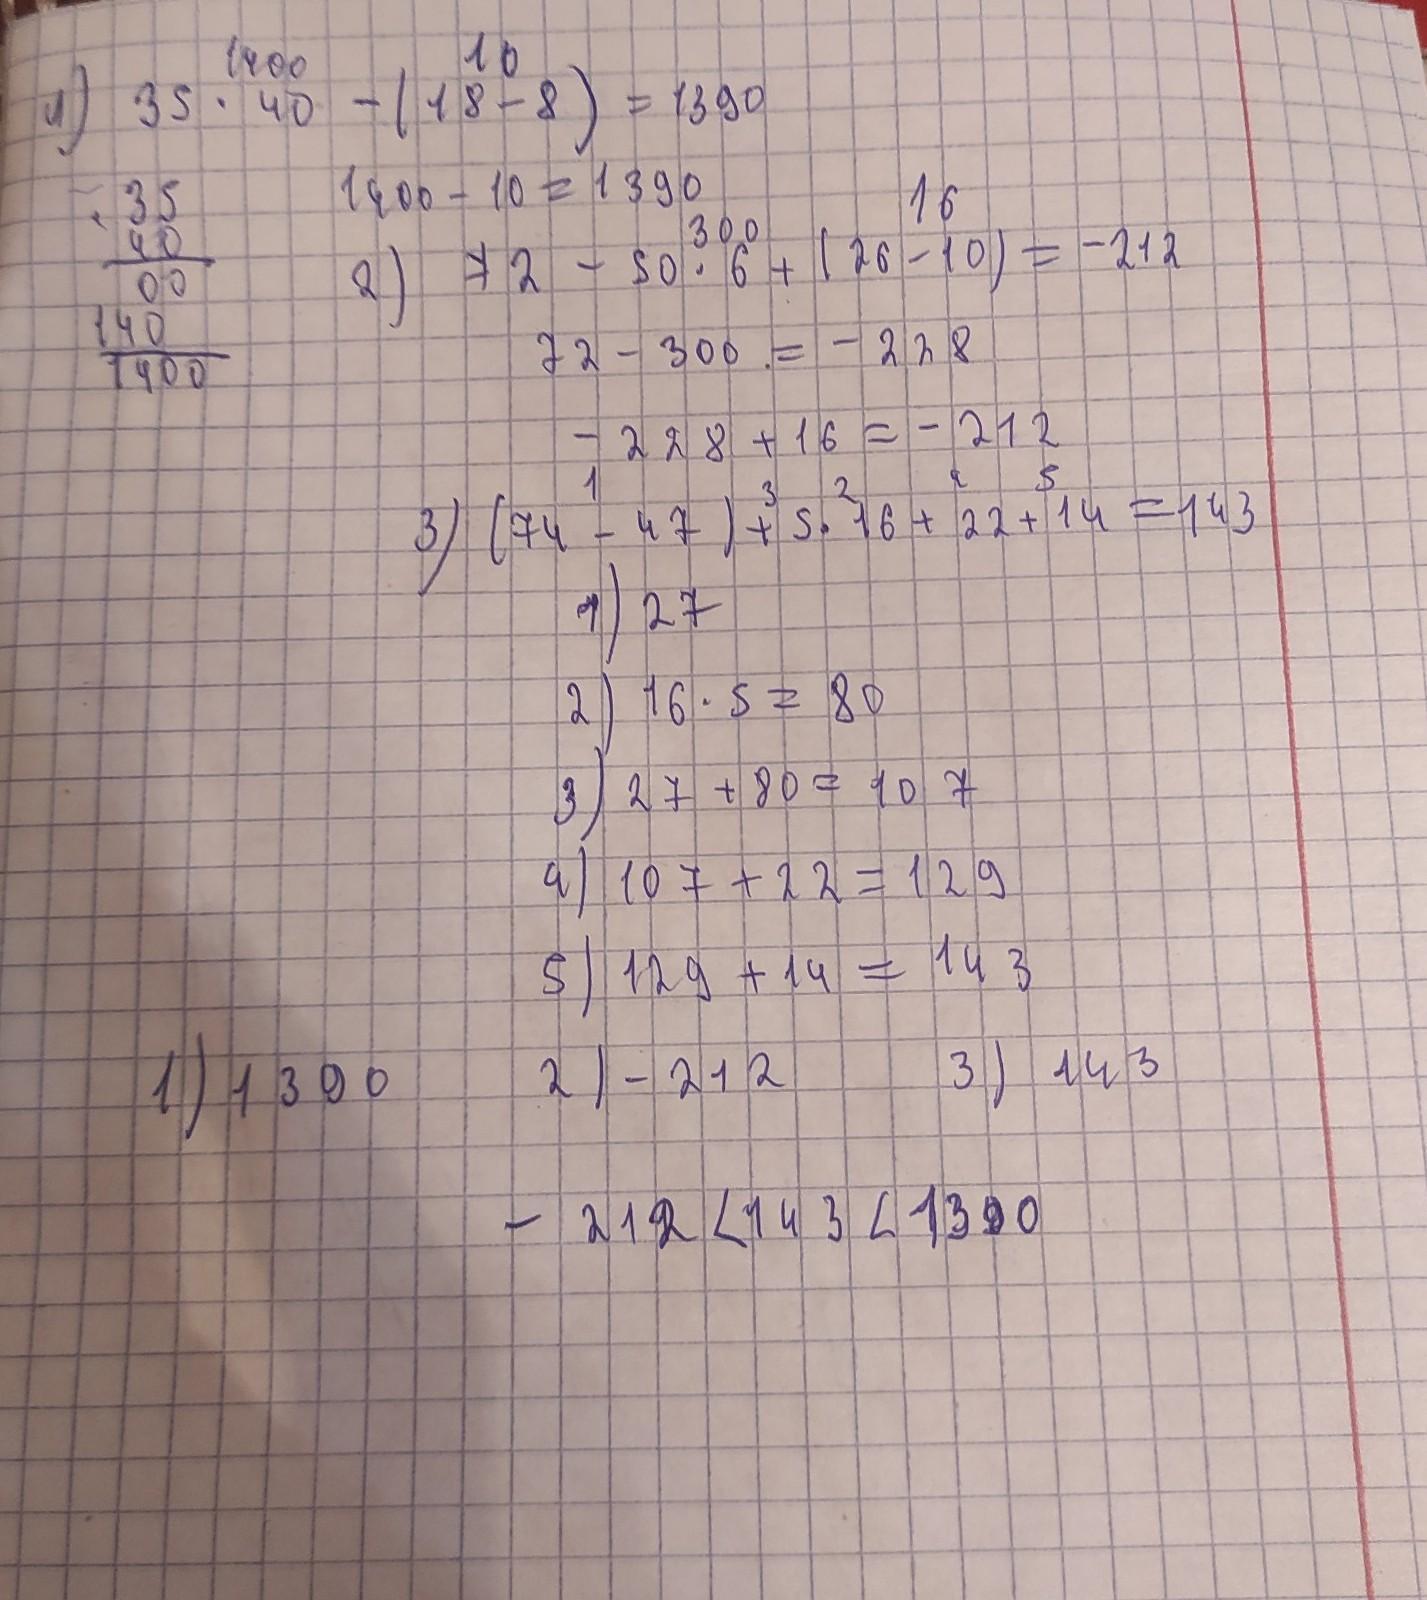 1400 10
1) 35 · 40 - (18 - 8) = 1390
35
40
00
140
1400
1400 - 10 = 1390
300 16
2) 72 - 50 · 6 + (26 - 10) = -212
72 - 300 = - 228
- 228 + 16 = - 212
1 3 2 4 5
3) (74 - 47) + 5 · 16 + 22 + 14 = 143
1) 27
2) 16 · 5 = 80
3) 27 + 80 = 107
4) 107 + 22 = 129
5) 129 + 14 = 143
1) 1390 2) - 212 3) 143
- 212 < 143 < 1390